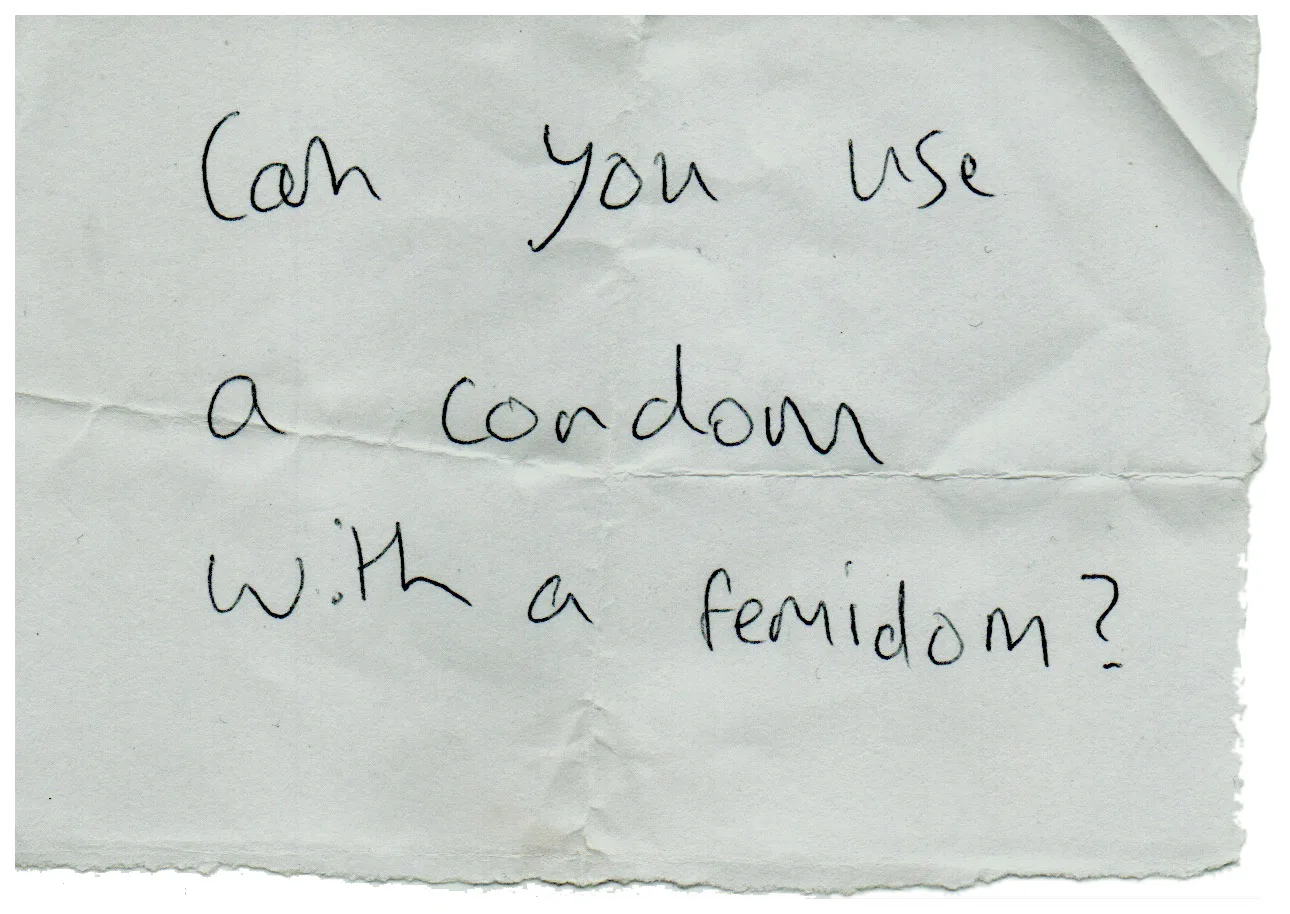 Can you use
a condom
with a femidom?